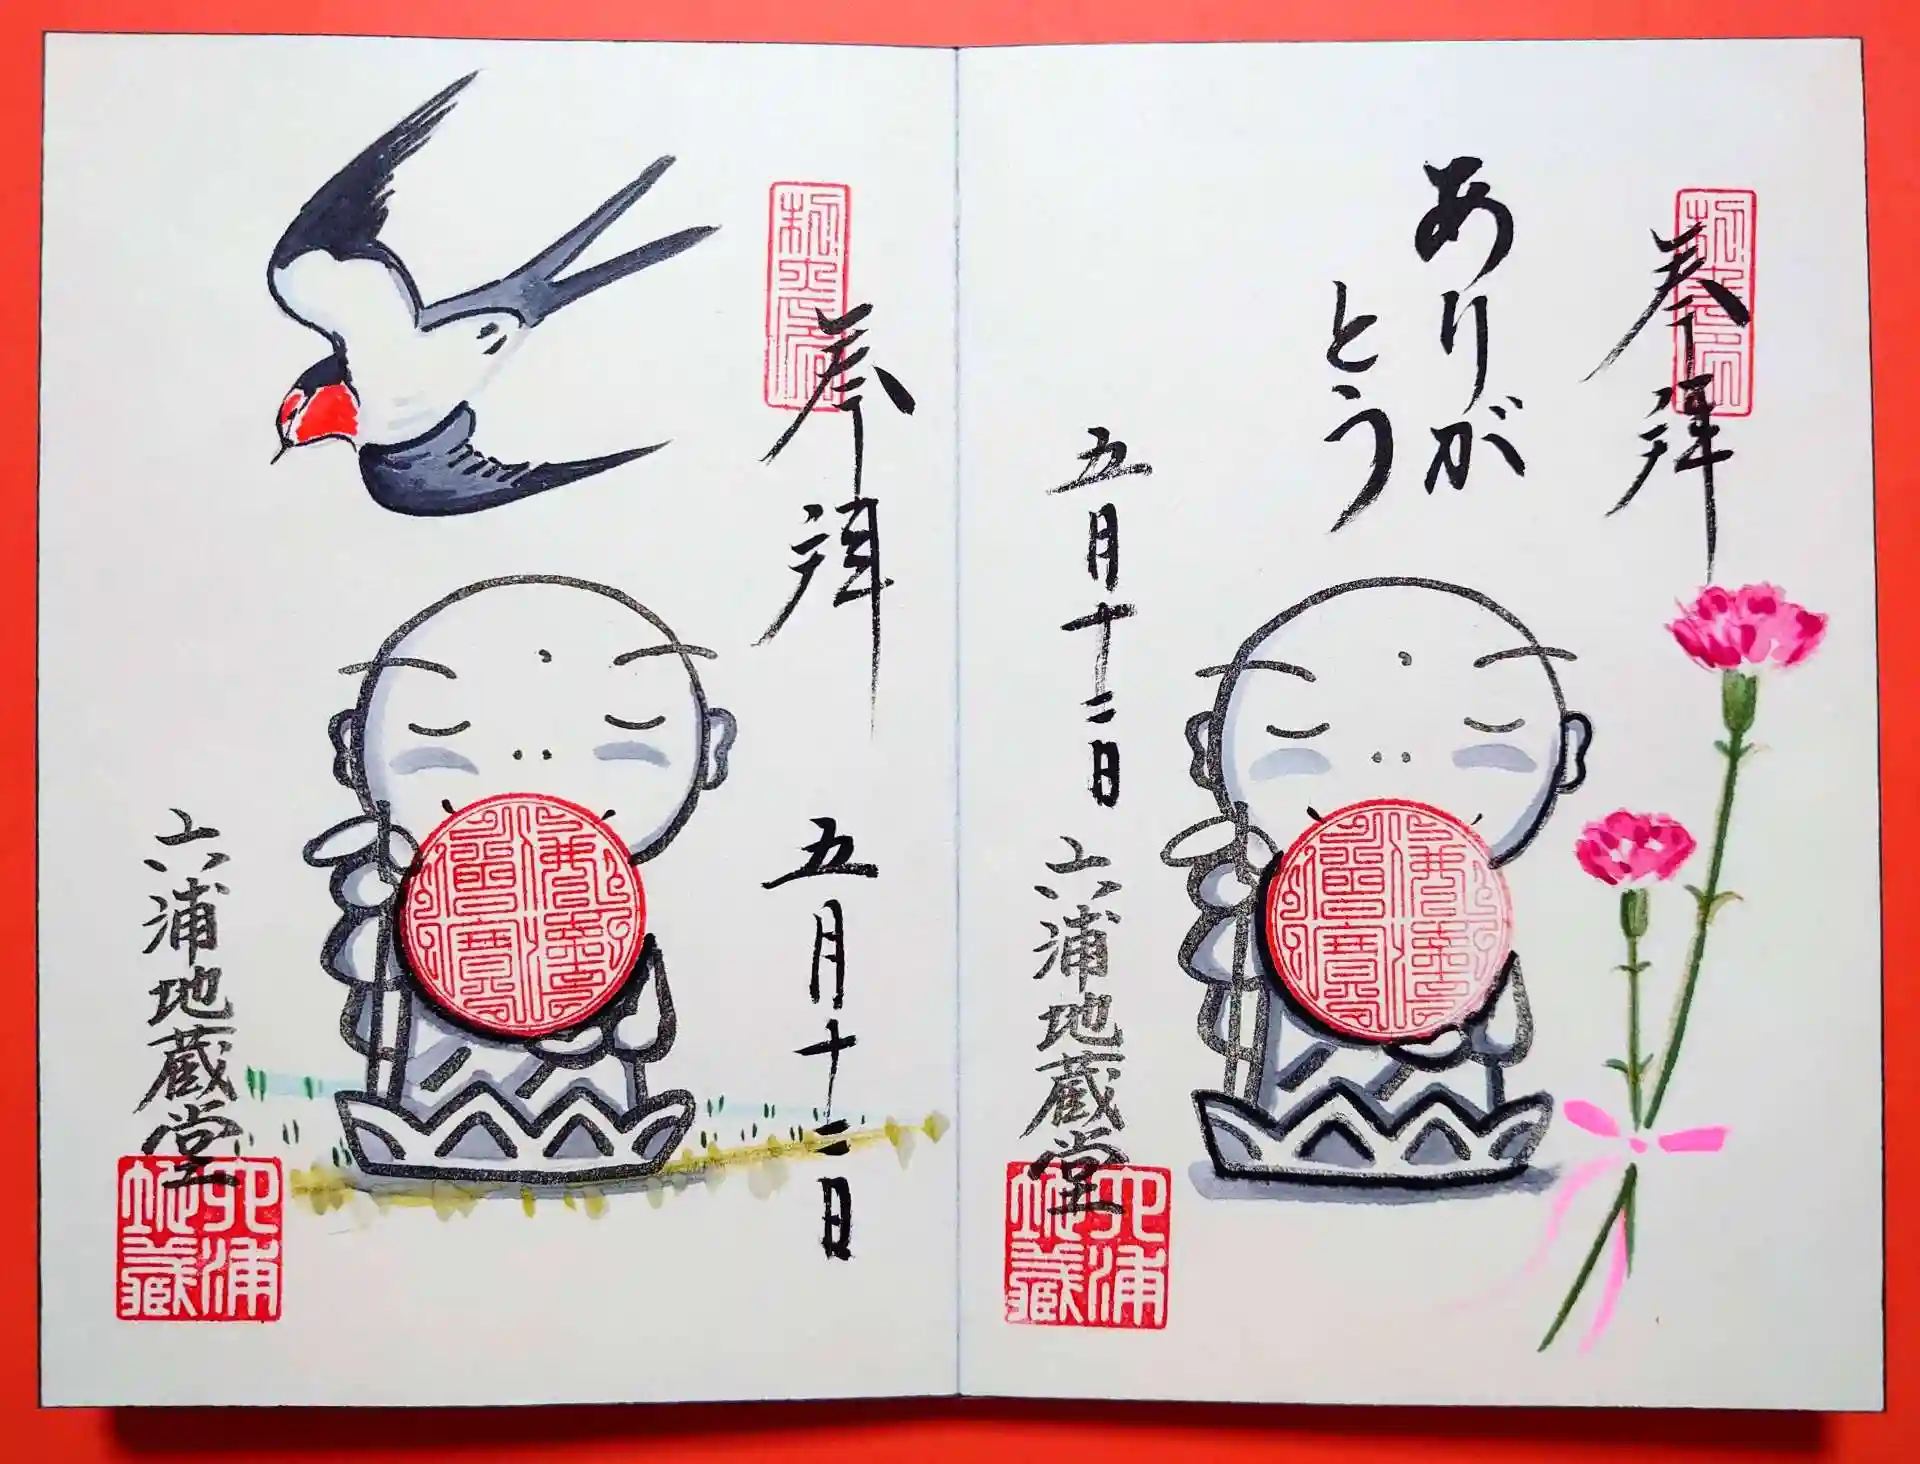 奉拝
ありが
とう
五月十二日
六浦地蔵堂
佛法僧寶
六浦地蔵
奉拝
五月十二日
六浦地蔵堂
佛法僧寶
六浦地蔵